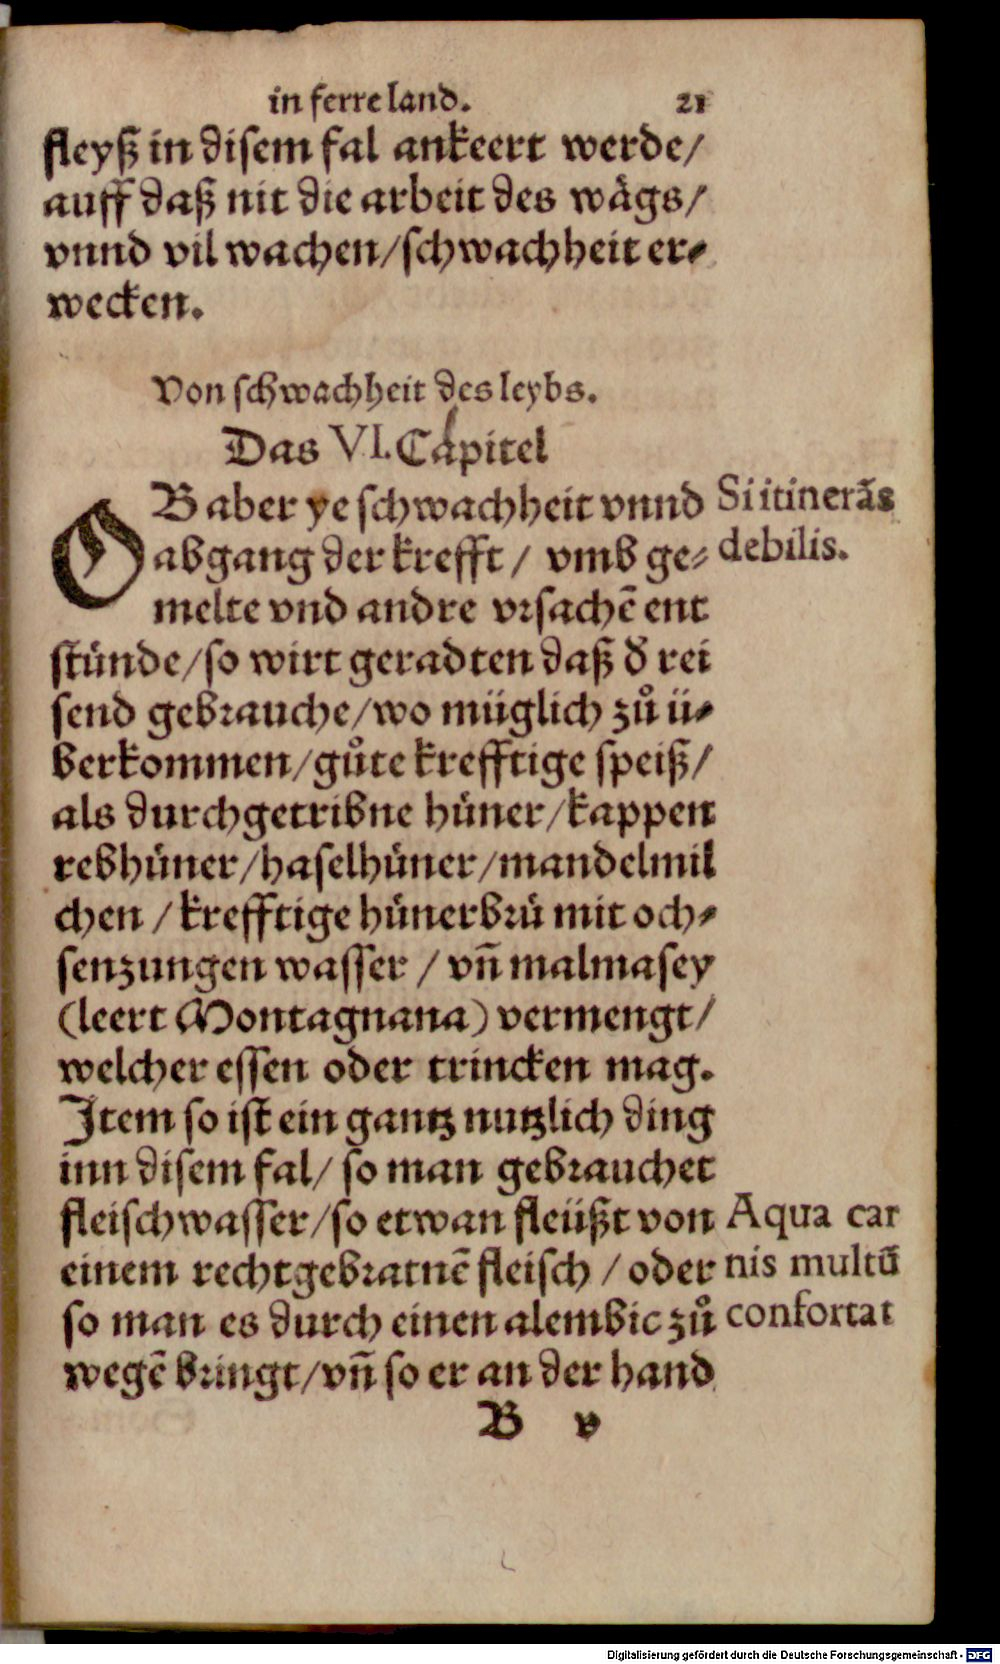 in ferre land. 21
fleyß in disem fal ankeert werde/
auff daß nit die arbeit des wägs/
vnnd vil wachen/schwachheit er⸗
wecken.
Von schwachheit des leybs.
Das VI. Capitel
OB aber ye schwachheit vnnd
Si itinerãs
abgang der krefft / vmb ge⸗
debilis.
melte vnd andre vrsachẽ ent
stünde/so wirt geradten daß d̃ rei
send gebrauche/wo müglich zů ü⸗
berkommen/gůte krefftige speiß/
als durchgetribne hüner/kappen
rebhüner/haselhüner/mandelmil
chen / krefftige hünerbrü mit och⸗
senzungen wasser / vñ malmasey
(leert Montagnana) vermengt/
welcher essen oder trincken mag.
Item so ist ein gantz nutzlich ding
inn disem fal/ so man gebrauchet
fleischwasser/so etwan fleüßt von
Aqua car
einem rechtgebratnẽ fleisch / oder
nis multũ
so man es durch einen alembic zů
confortat
wegẽ bringt/vñ so er an der hand
B v
Digitalisierung gefördert durch die Deutsche Forschungsgemeinschaft - DFG